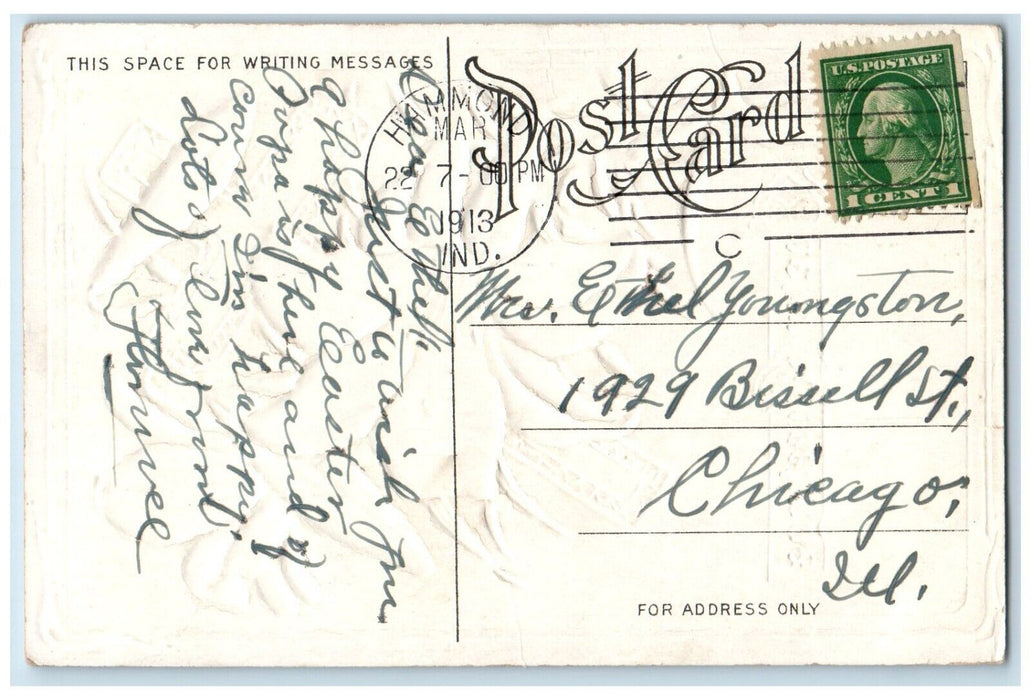 THIS SPACE FOR WRITING MESSAGES
Post Card
U.S. POSTAGE
1 CENT 1
HAMMOND
MAR
22 7-00 PM
1913
IND.
C
Dear Ethel:
Just to wish you
a happy Easter
is fine and of
corse I'm happy.
Lots of love from
Mrs. Ethel Youngston,
1929 Bissell St.,
Chicago,
Ill.
FOR ADDRESS ONLY